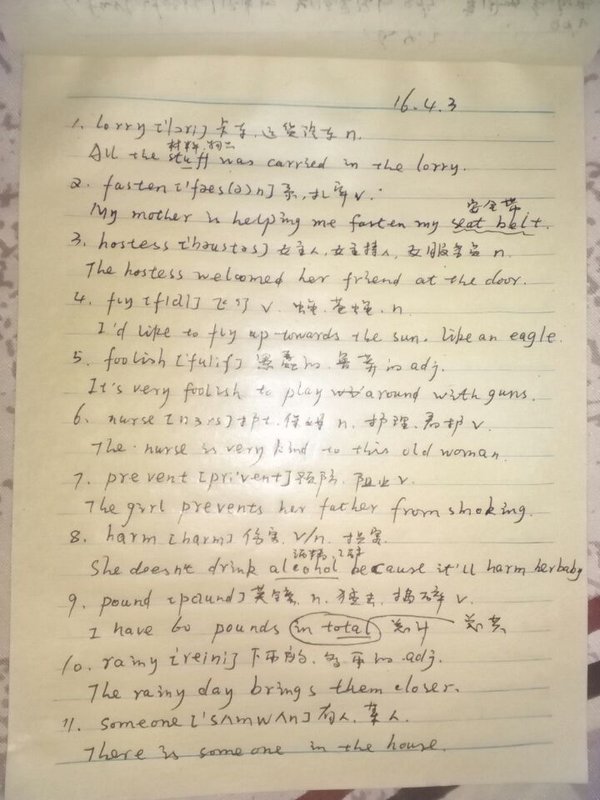 16.4.3
1. lorry ['lɔri] 卡车, 运货汽车 n.
材料, 物品
All the stuff was carried in the lorry.
2. fasten ['fæs(ə)n] 系, 扎牢 v.
安全带
My mother is helping me fasten my seat belt.
3. hostess ['həustəs] 女主人, 女主持人, 女服务员 n.
The hostess welcomed her friend at the door.
4. fly [flai] 飞行 v. 苍蝇. n.
I'd like to fly up towards the sun. like an eagle.
5. foolish ['fuliʃ] 愚蠢的. adj.
It's very foolish to play around with guns.
6. nurse [nɜrs] 护士. 保姆 n. 护理. 看护 v.
The nurse is very kind to this old woman.
7. prevent [pri'vent] 预防. 阻止 v.
The girl prevents her father from smoking.
8. harm [harm] 伤害. v/n. 损害.
酒精,
She doesn't drink alcohol because it'll harm her baby
9. pound [paund] 英镑. n. 猛击. 捣碎 v.
I have 60 pounds in total 总计 总共
10. rainy ['reini] 下雨的. 多雨的 .adj.
The rainy day brings them closer.
11. someone ['sʌmwʌn] 有人. 某人.
There is someone in the house.